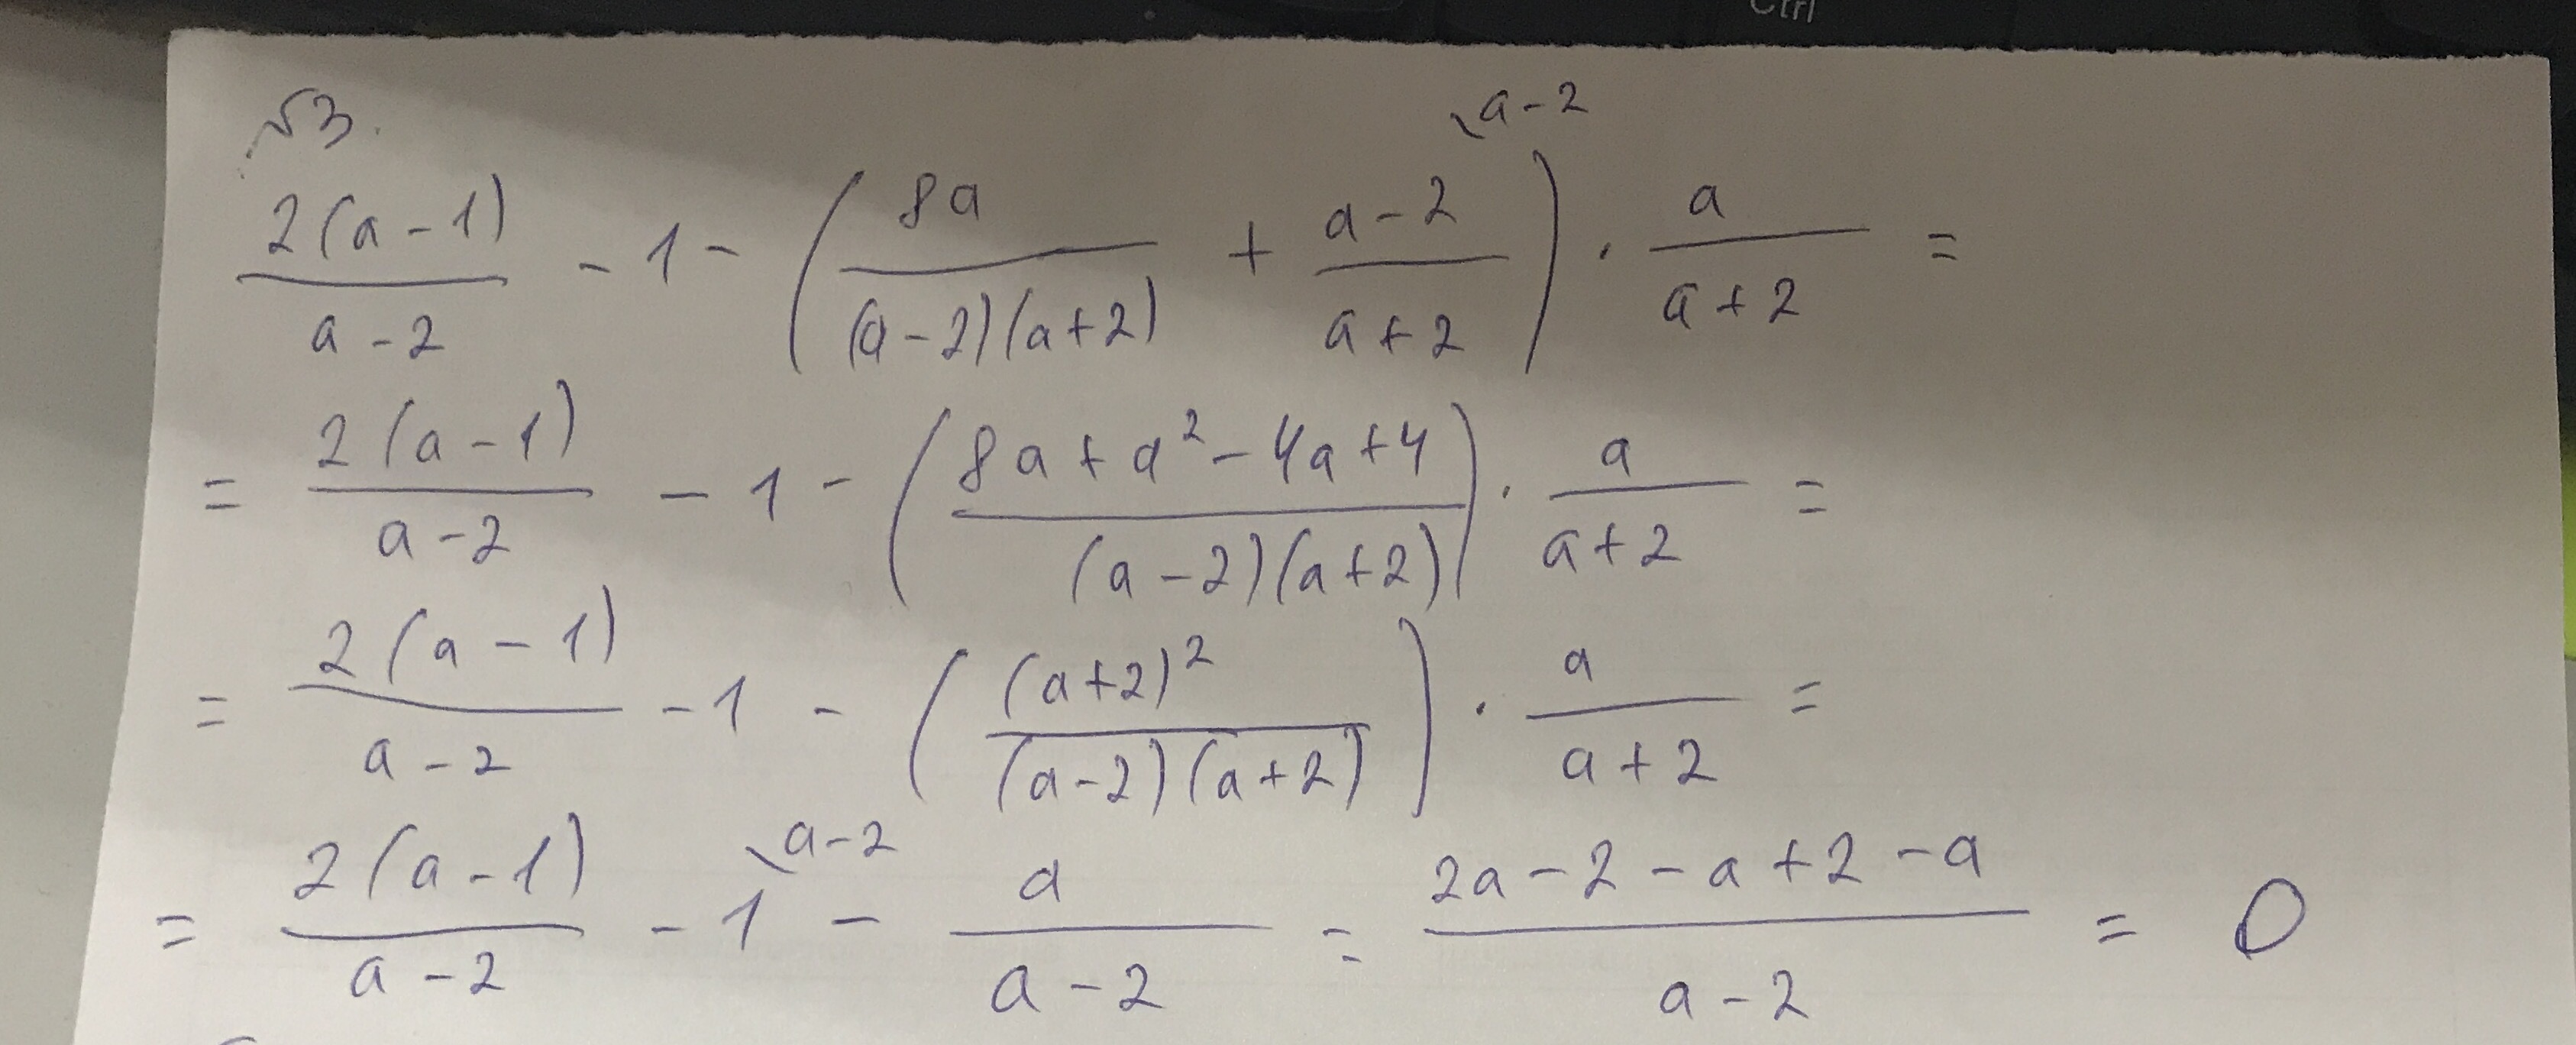 Ctrl
√3.
\a-2
2(a-1)/(a-2) - 1 - (8a/((a-2)(a+2)) + (a-2)/(a+2)) · a/(a+2) =
= 2(a-1)/(a-2) - 1 - ((8a+a²-4a+4)/((a-2)(a+2))) · a/(a+2) =
= 2(a-1)/(a-2) - 1 - ((a+2)²/((a-2)(a+2))) · a/(a+2) =
\a-2
= 2(a-1)/(a-2) - 1 - a/(a-2) = (2a-2-a+2-a)/(a-2) = 0